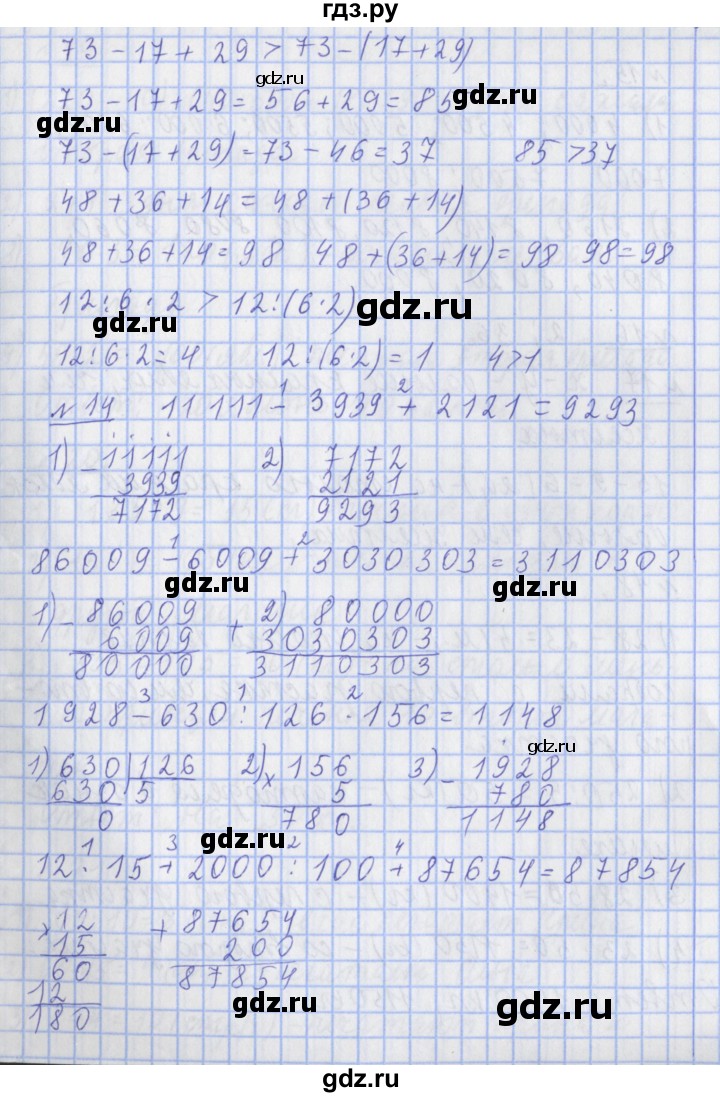 гдз.ру
73 - 17 + 29 > 73 - (17 + 29)
gdz.ru
73 - 17 + 29 = 56 + 29 = 85
gdz.ru
gdz.ru
73 - (17 + 29) = 73 - 46 = 37 85 > 37
48 + 36 + 14 = 48 + (36 + 14)
48 + 36 + 14 = 98 48 + (36 + 14) = 98 98 = 98
12 : 6 · 2 > 12 : (6 · 2)
gdz.ru
gdz.ru
12 : 6 · 2 = 4 12 : (6 · 2) = 1 4 > 1
1 2
№ 14 11 111 - 3939 + 2121 = 9293
1) - 11111 2) 7172
3939 2121
7172 9293
1 2
86009 - 6009 + 3030303 = 3110303
gdz.ru
gdz.ru
1) - 86009 2) 80000
6009 + 3030303
80000 3110303
3 1 2
1928 - 630 : 126 · 156 = 1148
gdz.ru
1) 630 | 126 2) x 156 3) - 1928
630 5 5 780
0 780 1148
gdz.ru
1 3 2 4
12 · 15 + 2000 : 100 + 87654 = 87854
x 12 + 87654
15 200
60 87854
12
180
gdz.ru
gdz.ru
gdz.ru